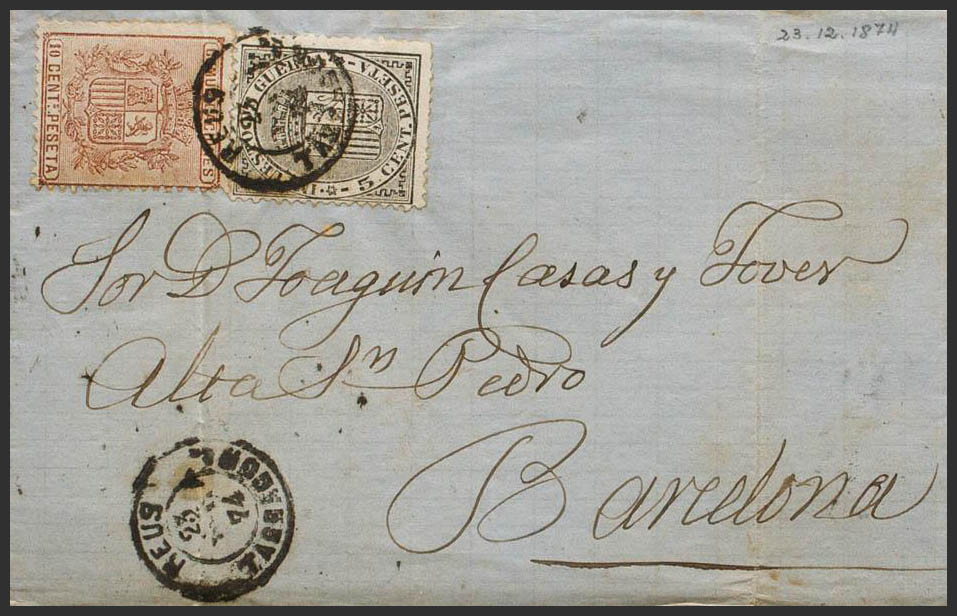 23.12.1874
10 CENT. PESETA
5 CENT. PESETA
GUERRA
REUS
23
Sor D Joaquin Casas y Tover
Alta Sn Pedro
Barcelona
REUS
23
74
TARRAGONA